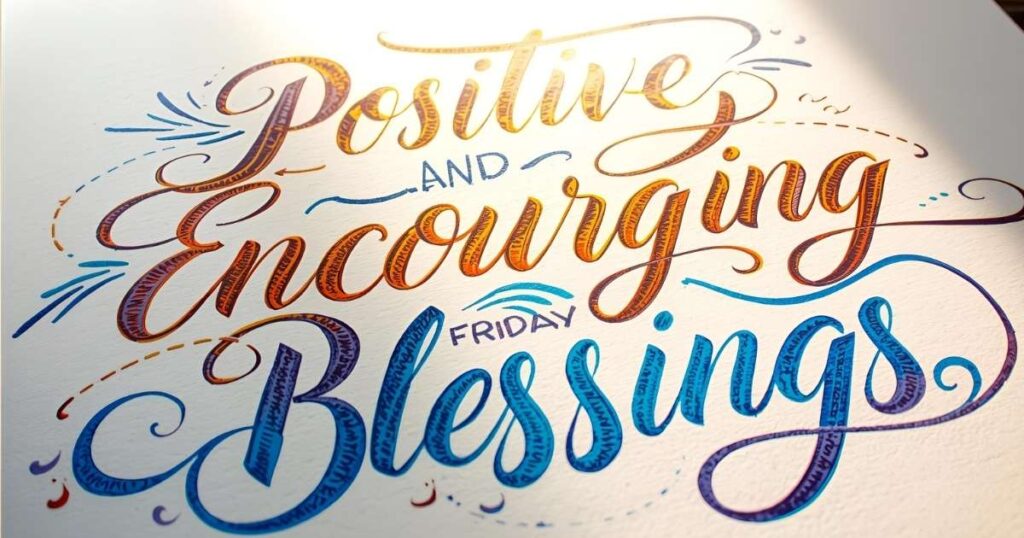 Positive
AND
Encourging
FRIDAY
Blessings